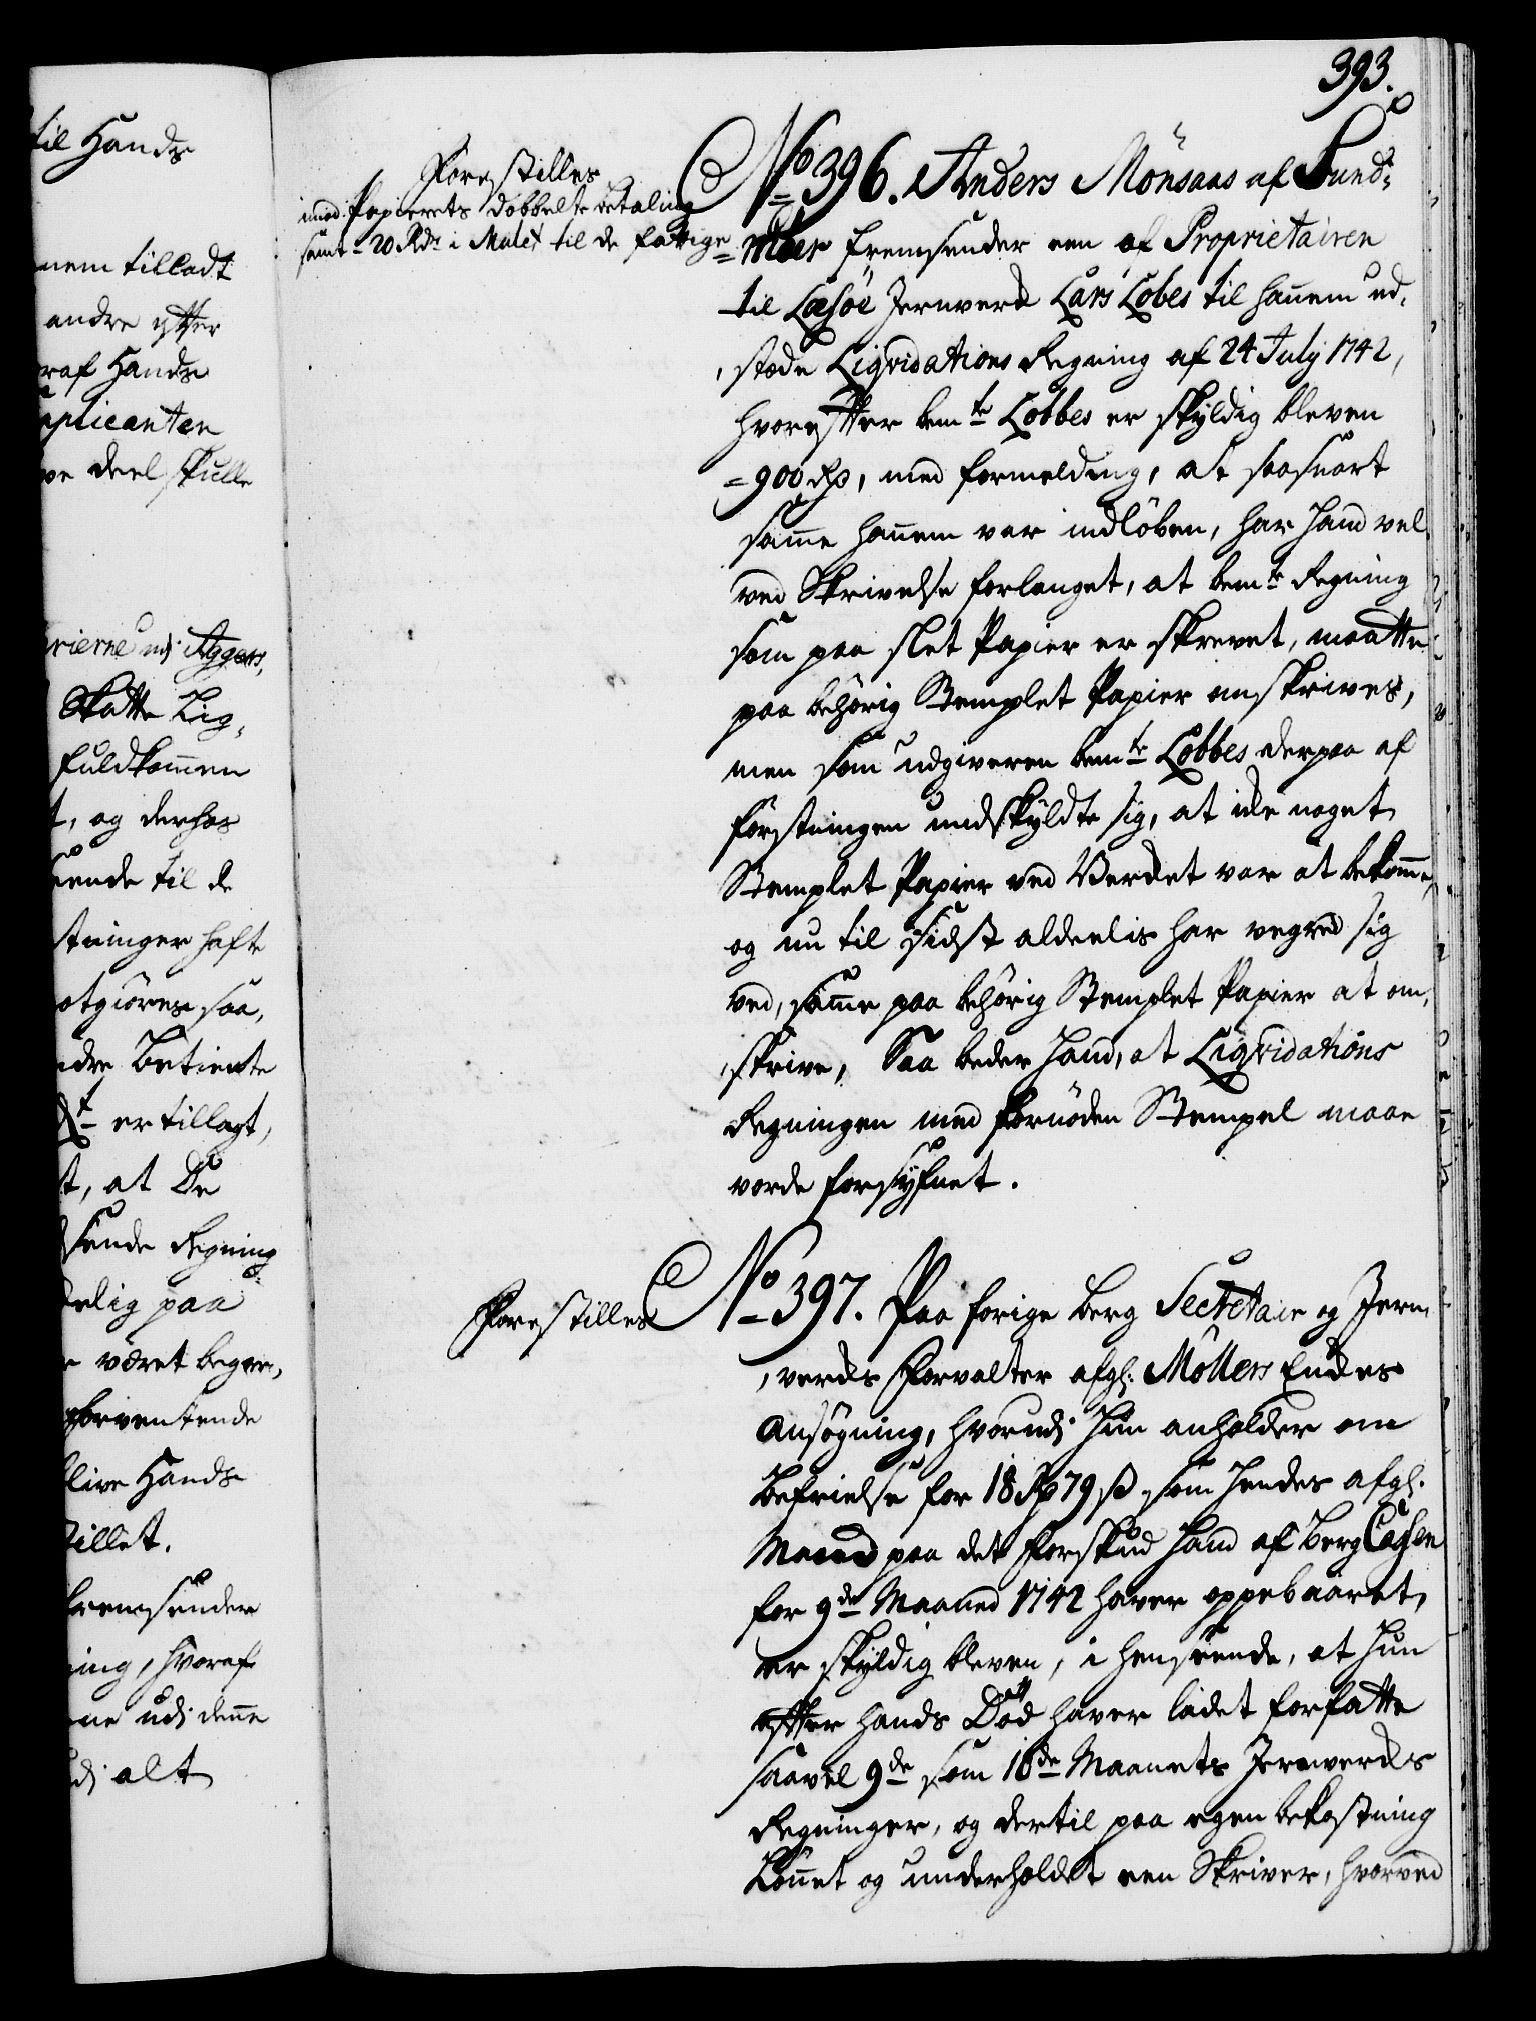 393.
til Hands
nem tilladt
andre ytter
raf Hands
plicanten
ve deel skulle
rierne udj Agger,
Skatte Lig,
fuldkommen
t, og derhos
ende til de
stninger hafte
otgiøres saa,
ndre Betiente
er tillagt,
t, at De
sende Regning
elig paa
været begær,
forventende
blive Hands
tillet.
fremsender
ning, hvoraf
ne udj denne
dj alt
Forestilles
imod Papierets dobbelte betaling
samt 20 Rdr i Mulct til de fattige
No 396. Anders Mönsaas af Sund,
=møer fremsender een af Proprietairen
til Læsöe Jernverk Lars Lobes til hannem ud,
,stæde Liqvidations Regning af 24 July 1742,
hvorefter bemte Lobbes er skyldig bleven
=900 Rd, med formelding, at saasnart
samme hannem var indløben, har Hand vel
ved Skrivelse forlanget, at bemte Regning
som paa slet Papier er skrevet, maatte
paa behörig Stemplet Papier omskrives,
men som udgiveren bemte Lobbes derpaa af
förstningen undskyldte sig, at ide noget
Stemplet Papier ved Verket var at bekomme,
og nu til sidst aldeelis har vegred sig
ved, samme paa behörig Stemplet Papier at om,
,skrive, Saa beder Hand, at Liqvidations
Regningen med fornöden Stempel maae
vorde forsyfnet.
Forestilles
No 397. Paa forige Berg Secretair og Jern
,verks Forvalter afg: Möllers Enkes
Ansögning, hvorudj Hun anholder om
befrielse for 18 Rd 79 s som Hendes afg:
Mand paa det Forskud Hand af Berg Cassen
for 9de Maaned 1742 haver oppebaaret,
er skyldig bleven, i henseende, at Hun
efter hands Död haver ladet forfatte
saavel 9de som 10de Maanets Jernverks
Regninger, og dertil paa egen bekostning
Lönnet og underholdt een Skriver, hvorved